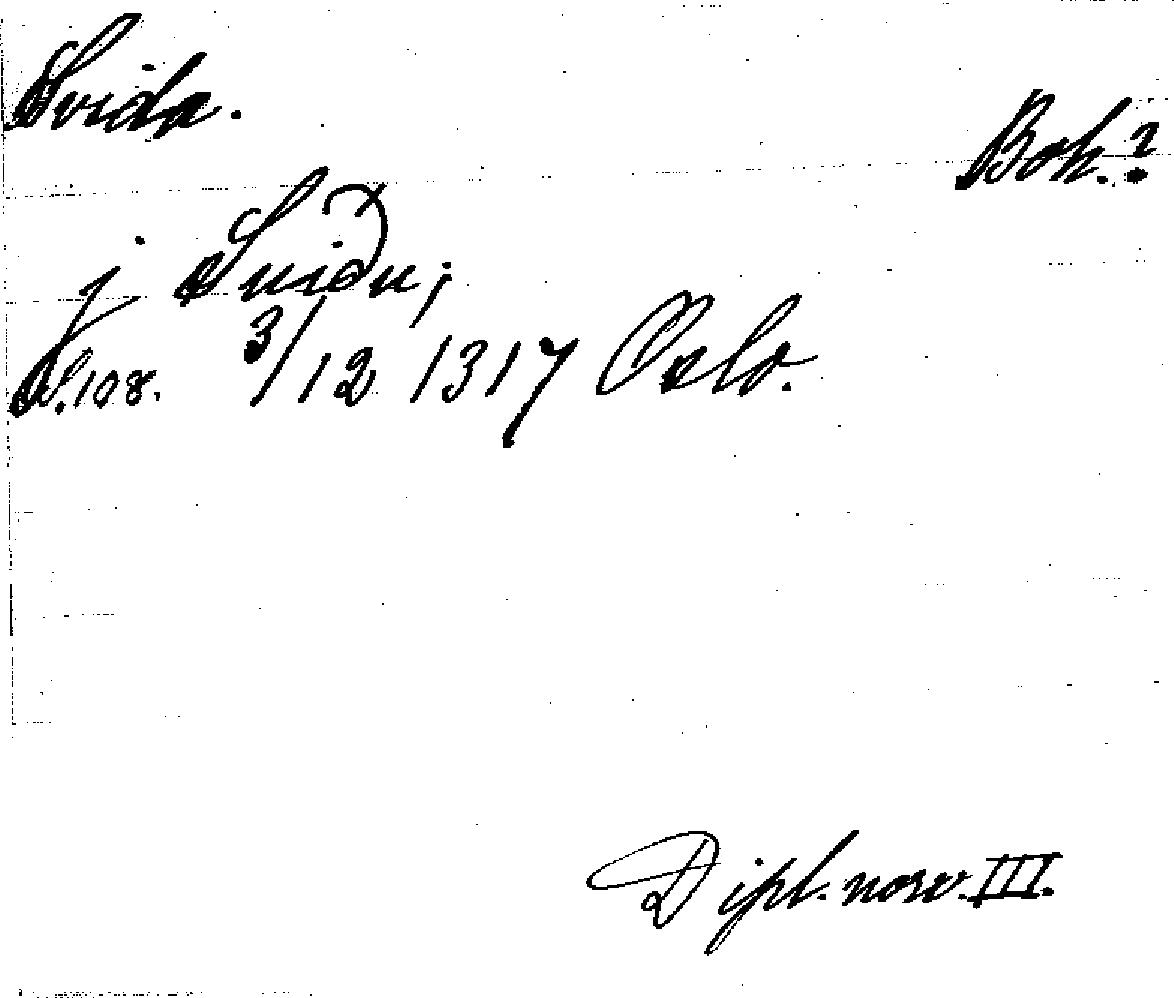 Svida.
Boh.?
j Suiðu;
S. 108. 3/12 1317 Oslo.
Dipl. norv. III.